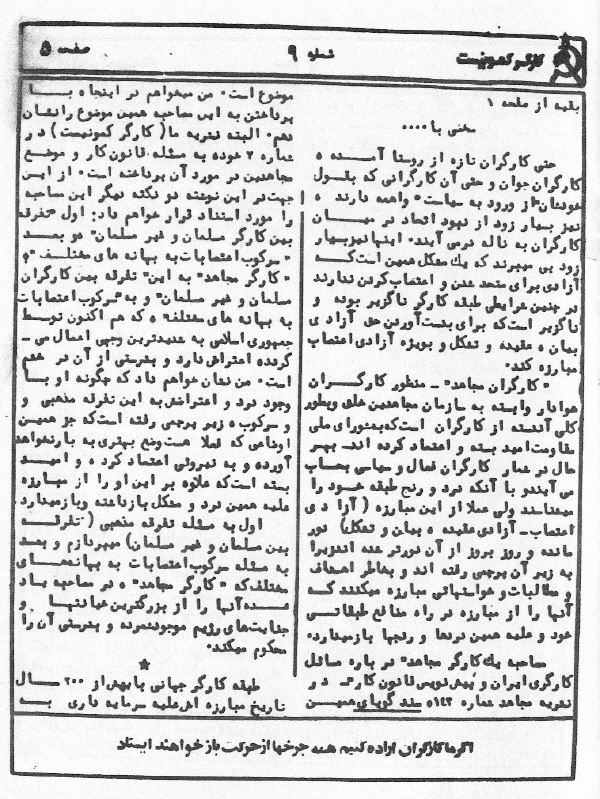 کارگر کمونیست
شماره ۹
صفحه ۵
بقیه از صفحه ۱
سخنی با ۰۰۰۰
حتی کارگران تازه از روستا آمده ه
کارگران جوان و حتی آن کارگرانی که بقول
خودشان "از ورود به سیاست" واهمه دارند ه
نیز بسیار زود از نبود اتحاد در میان
کارگران به ناله درمی آیند۰ اینها نیز بسیار
زود پی میبرند که یک مشکل همین است که
آزادی برای متحد شدن و اعتصاب کردن ندارند
در چنین شرایطی طبقه کارگر ناگزیر بوده و
ناگزیر است که برای بدست آوردن حق آزادی
بیان ه عقیده و تشکل و بویژه آزادی اعتصاب
مبارزه کند۰
"کارگران مجاهد" ـ منظور کارگران
هوادار وابسته به سازمان مجاهدین خلق و بطور
کلی آندسته از کارگران است که به شورای ملی
مقاومت امید بسته و اعتماد کرده اند ـ بهر
حال در شمار کارگران فعال و سیاسی بحساب
می آیند و با آنکه درد و رنج طبقه خود را
میدانند ولی عملا از این مبارزه (آزادی
اعتصاب ـ آزادی عقیده ه بیان و تشکل) دور
مانده و روز بروز از آن دورتر شده اند زیرا
به زیر آن پرچمی رفته اند و بخاطر اهداف
و مطالبات و خواستهائی مبارزه میکنند که
آنها را از مبارزه در راه منافع طبقاتی
خود و علیه همین دردها و رنجها بازمیدارد۰
مصاحبه یک "کارگر مجاهد" در باره مسائل
کارگری ایران و پیش نویس قانون کار ـ در
نشریه مجاهد شماره ۱۴۲ ه سند گویای همین
موضوع است۰ من میخواهم در اینجا با
پرداختن به این مصاحبه همین موضوع را نشان
دهم۰ البته نشریه ما (کارگر کمونیست) در
شماره ۲ خود به مسئله قانون کار و موضع
مجاهدین در مورد آن پرداخته است۰ از این
جهت در این نوشته دو نکته دیگر این مصاحبه
را مورد استناد قرار خواهم داد: اول "تفرقه
بین کارگر مسلمان و غیر مسلمان" دو بعد
"سرکوب اعتصابات به بهانه های مختلف"۰
"کارگر مجاهد" به این "تفرقه بین کارگران
مسلمان و غیر مسلمان" و به "سرکوب اعتصابات
به بهانه های مختلف" ه که هم اکنون توسط
جمهوری اسلامی به شدیدترین وجهی اعمال می ـ
گردد اعتراض دارد و بدرستی از آن در خشم
است۰ من نشان خواهم داد که چگونه او با
وجود درد و اعتراضش به این تفرقه مذهبی و
و سرکوب ه زیر پرچمی رفته است که جز همین
اوضاعی که فعلا هست وضع بهتری به بار نخواهد
آورد ه و به نیروئی اعتماد کرد ه و امید
بسته است که علاوه بر این او را از مبارزه
علیه همین درد و مشکل باز داشته و بازمیدارد۰
اول به مسئله تفرقه مذهبی (تفرقه
بین مسلمان و غیر مسلمان) میپردازم و بعد
به مسئله سرکوب اعتصابات به بهانه های
مختلف که "کارگر مجاهد" ه در مصاحبه یاد
شده آنها را از بزرگترین خیانتها و
جنایت های رژیم موجود شمرده و بدرستی آن را
محکوم میکند۰
طبقه کارگر جهانی با بیش از ۲۰۰ سال
تاریخ مبارزه اش علیه سرمایه داری به
اگر ما کارگران اراده کنیم همه چرخها از حرکت باز خواهند ایستاد